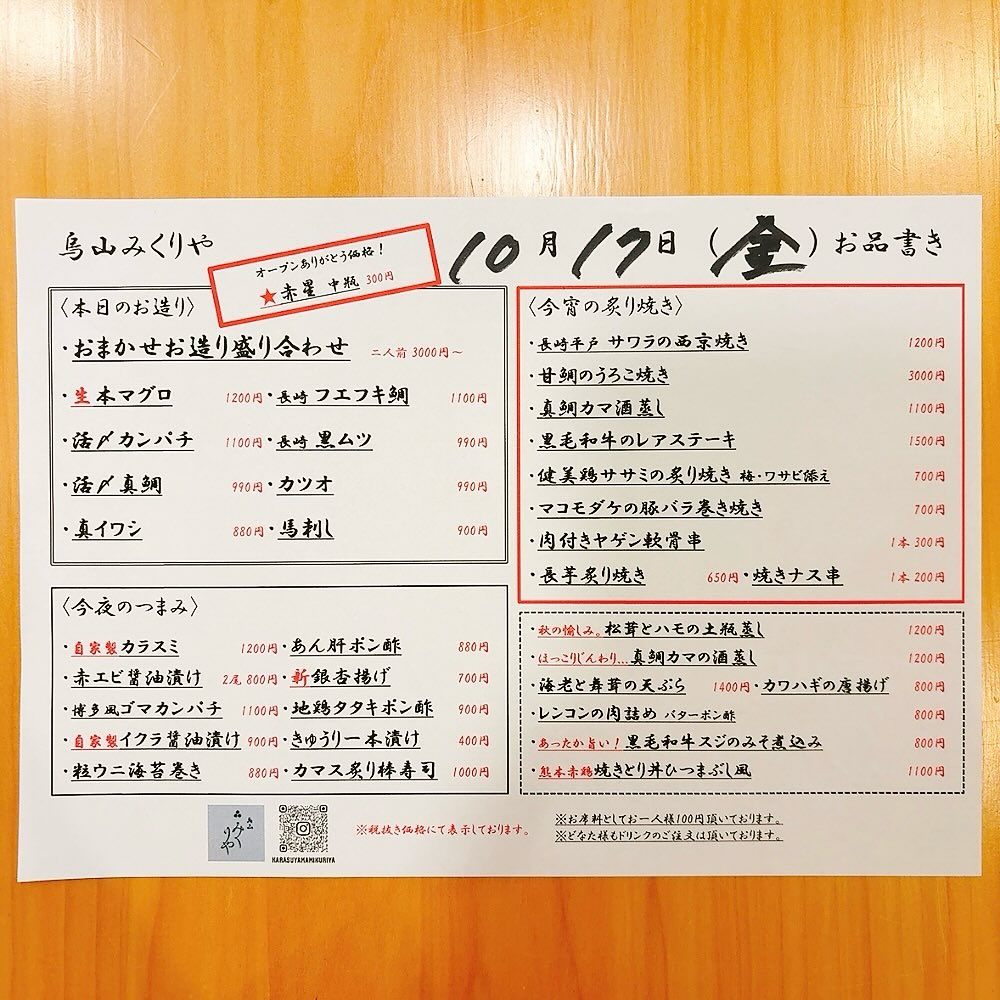 烏山みくりや
オープンありがとう価格！
★赤星 中瓶 300円
10月17日（金）お品書き
〈本日のお造り〉
・おまかせお造り盛り合わせ 二人前 3000円～
・生本マグロ 1200円・長崎 フエフキ鯛 1100円
・活〆カンパチ 1100円・長崎 黒ムツ 990円
・活〆真鯛 990円・カツオ 990円
・真イワシ 880円・馬刺し 900円
〈今夜のつまみ〉
・自家製カラスミ 1200円・あん肝ポン酢 880円
・赤エビ醤油漬け 2尾 800円・新銀杏揚げ 700円
・博多風ゴマカンパチ 1100円・地鶏タタキポン酢 900円
・自家製イクラ醤油漬け 900円・きゅうり一本漬け 400円
・粒ウニ海苔巻き 880円・カマス炙り棒寿司 1000円
〈今宵の炙り焼き〉
・長崎平戸 サワラの西京焼き 1200円
・甘鯛のうろこ焼き 3000円
・真鯛カマ酒蒸し 1100円
・黒毛和牛のレアステーキ 1500円
・健美鶏ササミの炙り焼き 梅・ワサビ添え 700円
・マコモダケの豚バラ巻き焼き 700円
・肉付きヤゲン軟骨串 1本 300円
・長芋炙り焼き 650円・焼きナス串 1本 200円
・秋の愉しみ。松茸とハモの土瓶蒸し 1200円
・ほっこりじんわり…真鯛カマの酒蒸し 1200円
・海老と舞茸の天ぷら 1400円・カワハギの唐揚げ 800円
・レンコンの肉詰め バターポン酢 800円
・あったか旨い！黒毛和牛スジのみそ煮込み 800円
・熊本赤鶏焼きとり丼ひつまぶし風 1100円
烏山
みくりや
KARASUYAMAMIKURIYA
※税抜き価格にて表示しております。
※お席料としてお一人様100円頂いております。
※どなた様もドリンクのご注文は頂いております。